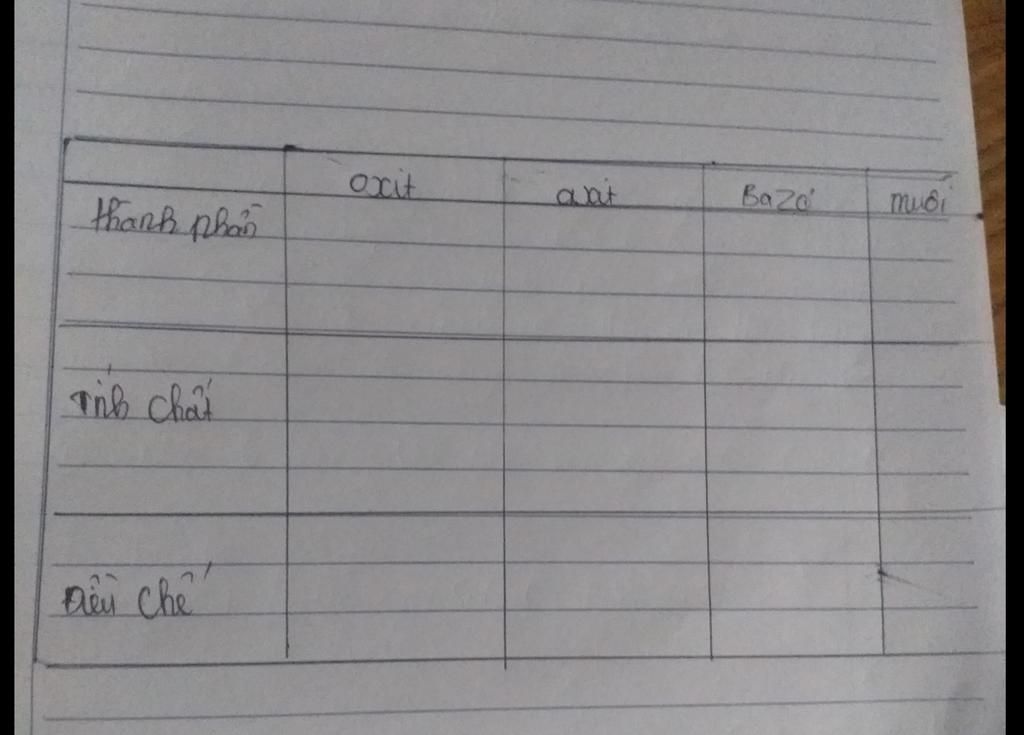 oxit axit Bazơ muối
thành phần
Tính chất
Điều chế